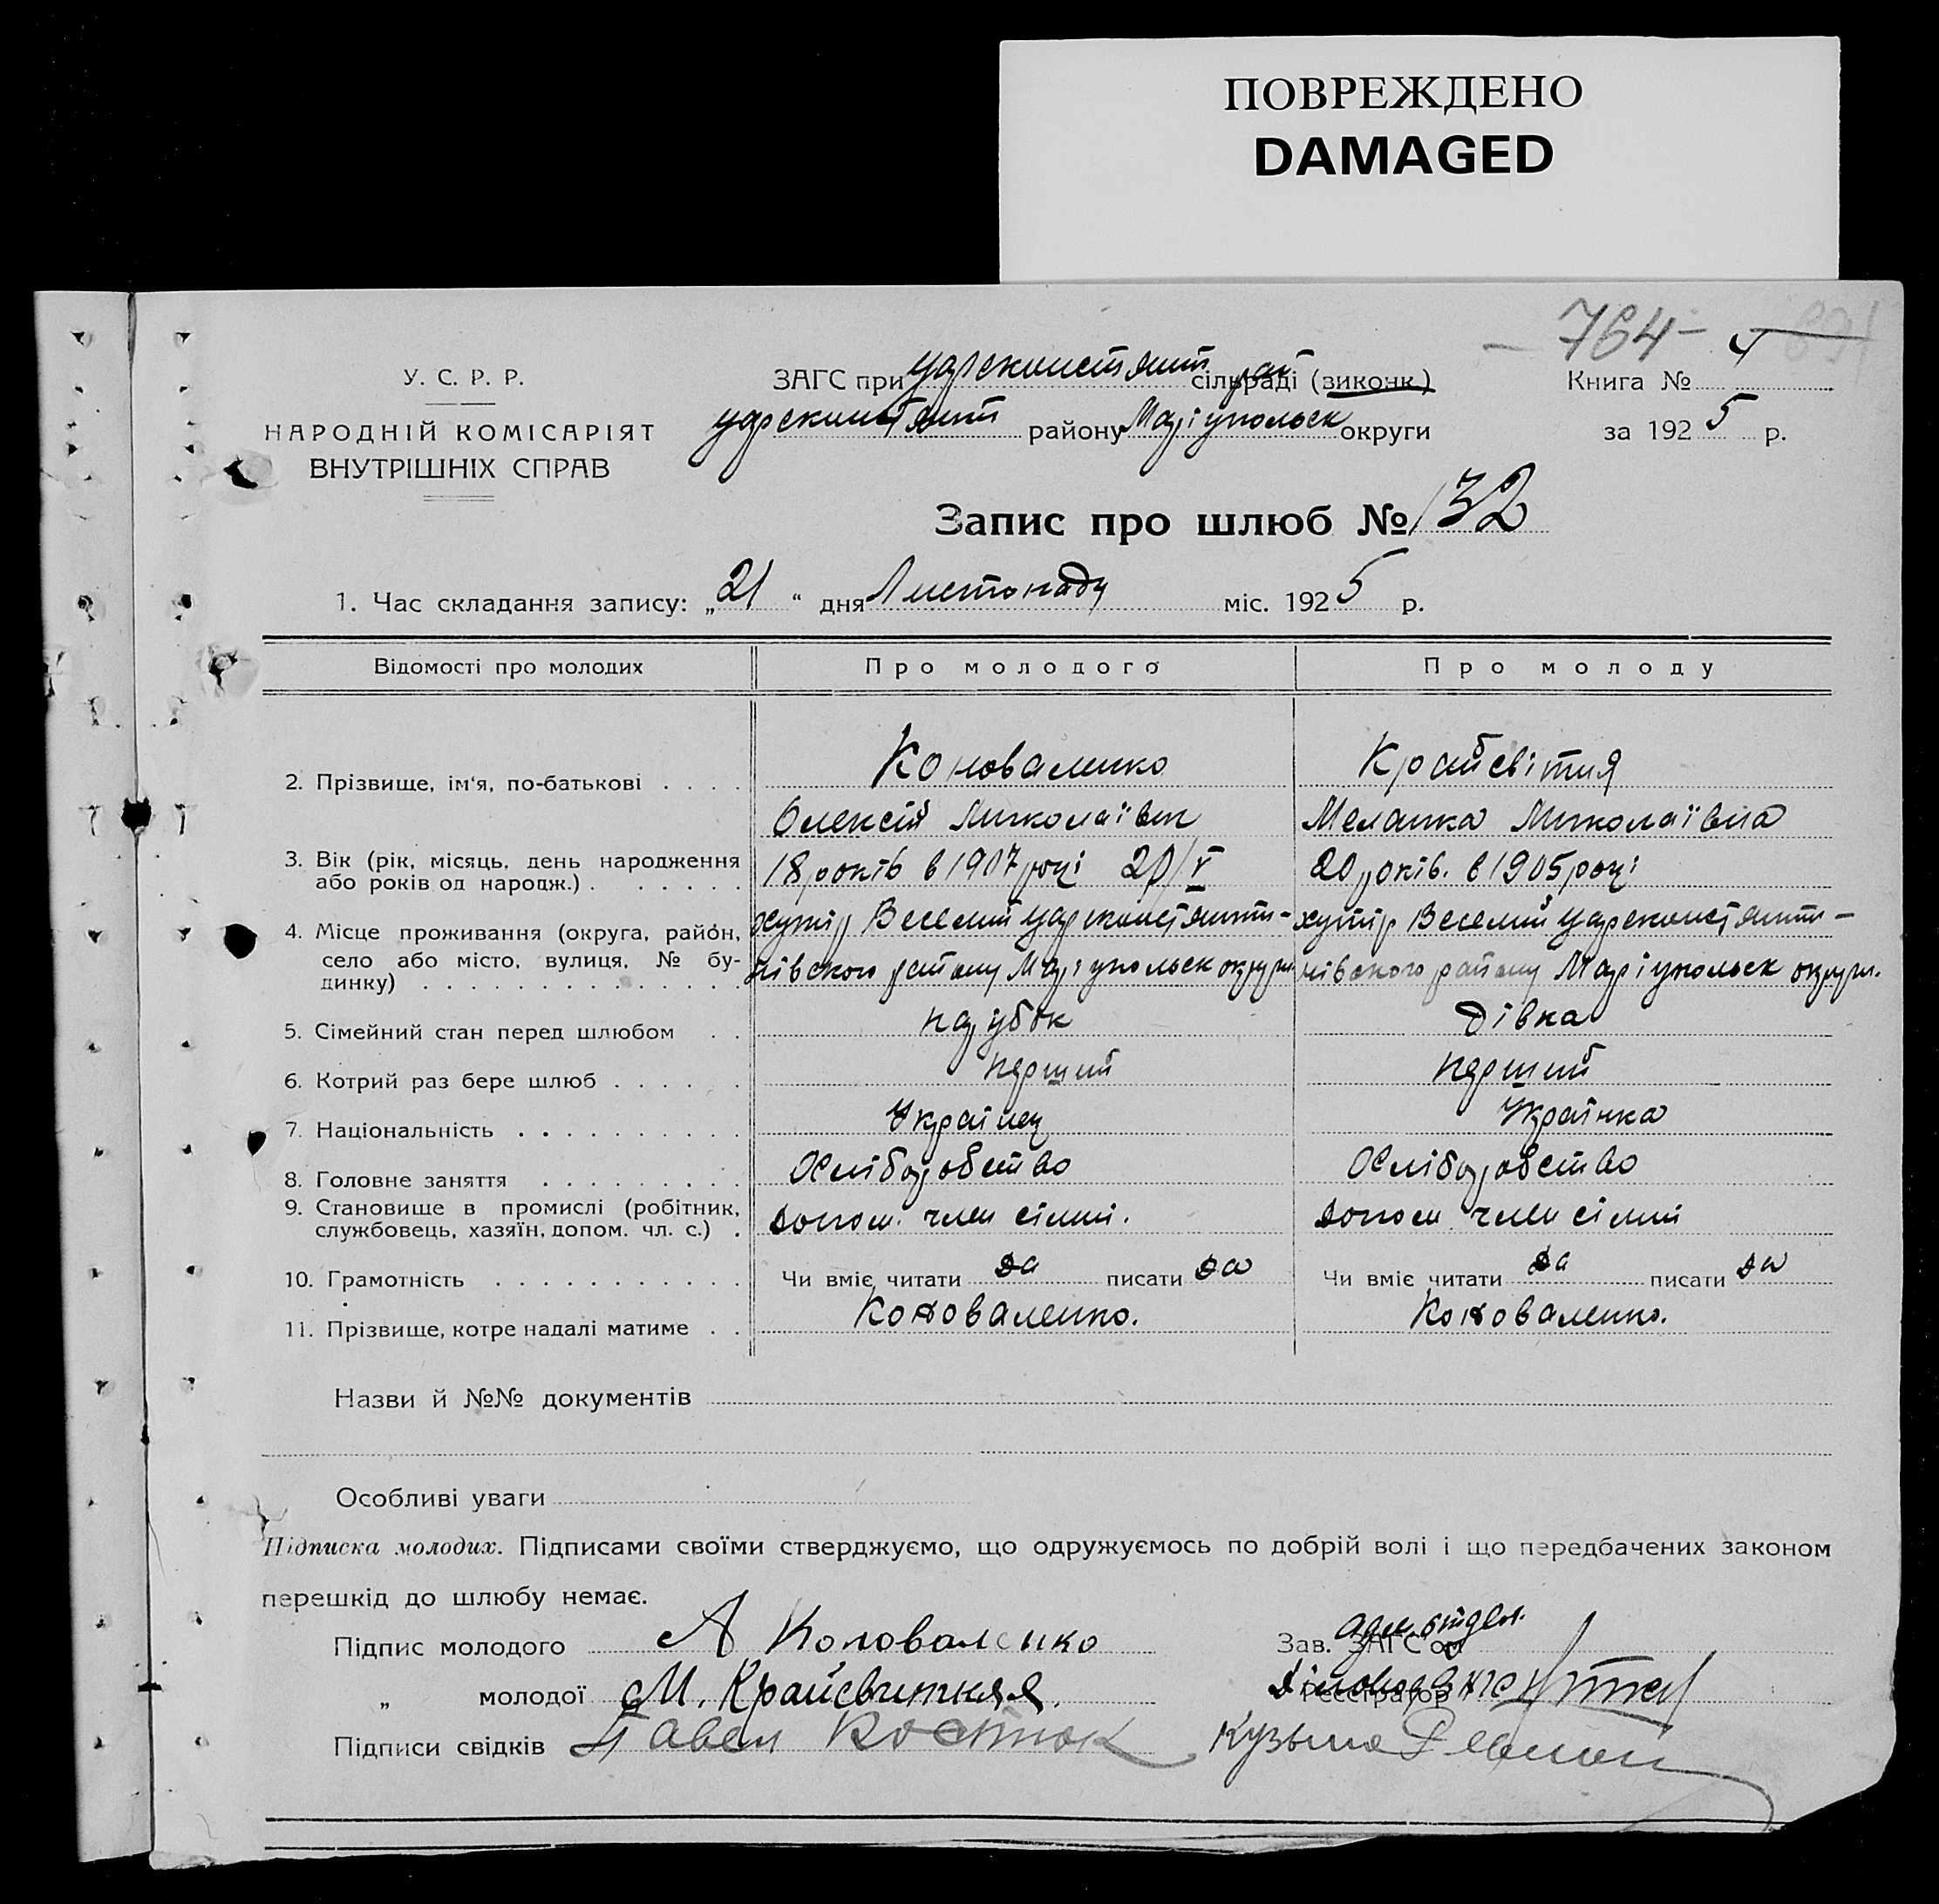 ПОВРЕЖДЕНО
DAMAGED
764
У. С. Р. Р.
НАРОДНІЙ КОМІСАРІЯТ
ВНУТРІШНІХ СПРАВ
ЗАГС при Цареконстянт сільраді (виконк.)
Цареконстянт району Маріупольськ округи
Книга № 4
за 1925 р.
Запис про шлюб № 132
1. Час складання запису: „21“ дня Листопаду міс. 1925 р.
Відомості про молодих
Про молодого
Про молоду
2. Прізвище, ім'я, по-батькові . . . .
Коноваленко
Олексій Миколаївич
Крайсвітня
Меланка Миколаївна
3. Вік (рік, місяць, день народження
або років од народж.) . . . . . .
18 років в 1907 році 20/V
20 років. в 1905 році
4. Місце проживання (округа, район,
село або місто, вулиця, № бу-
динку) . . . . . . . . . . . . .
хутір Веселий Цареконстянти-
нівського району Маріупольськ округи
хутір Веселий Цареконстянти-
нівського району Маріупольськ округи.
5. Сімейний стан перед шлюбом . .
парубок
дівка
6. Котрий раз бере шлюб . . . . .
перший
перший
7. Національність . . . . . . . . .
Українец
Українка
8. Головне заняття . . . . . . . .
Хліборобство
Хліборобство
9. Становище в промислі (робітник,
службовець, хазяїн, допом. чл. с.) .
допом. член сімні.
допом член сімні
10. Грамотність . . . . . . . . . . .
Чи вміє читати да писати да
Чи вміє читати да писати да
11. Прізвище, котре надалі матиме . .
Коноваленко.
Коноваленко.
Назви й №№ документів
Особливі уваги
Підписка молодих. Підписами своїми стверджуємо, що одружуємось по добрій волі і що передбачених законом
перешкід до шлюбу немає.
Підпис молодого А Коноваленко
Зав. ЗАГС'ом Адм. отдел.
„ молодої М. Крайсвитняя.
Реєстратор
Підписи свідків Павел Костюк Кузьма